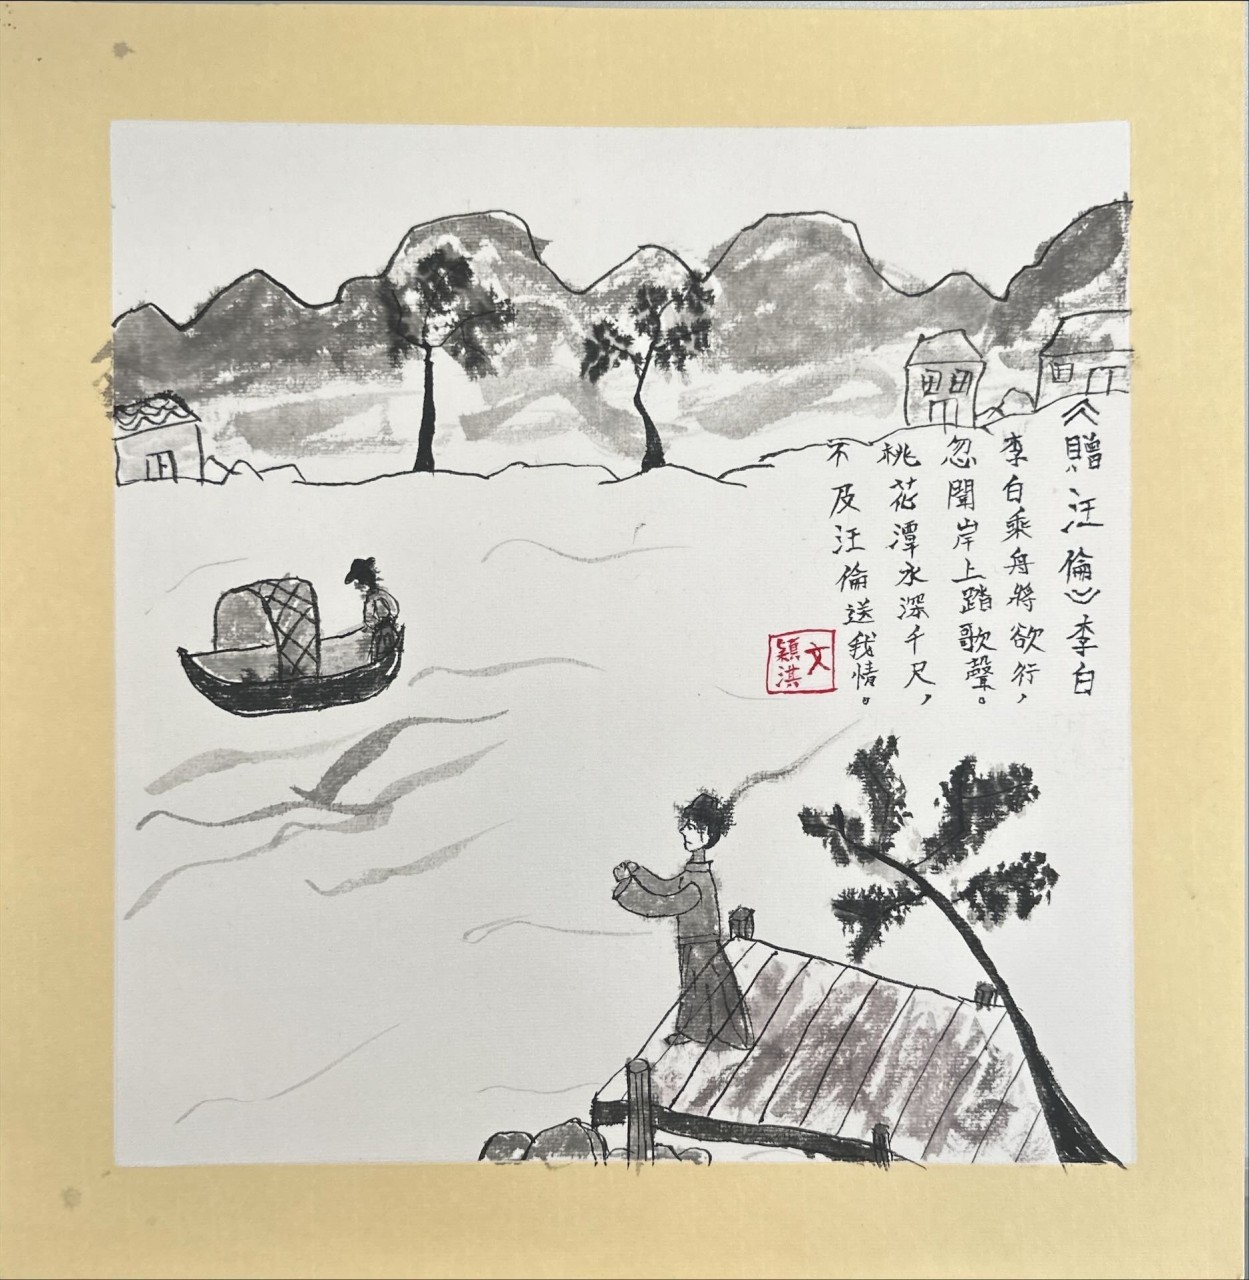 《贈汪倫》李白
李白乘舟將欲行，
忽聞岸上踏歌聲。
桃花潭水深千尺，
不及汪倫送我情。
文
穎淇